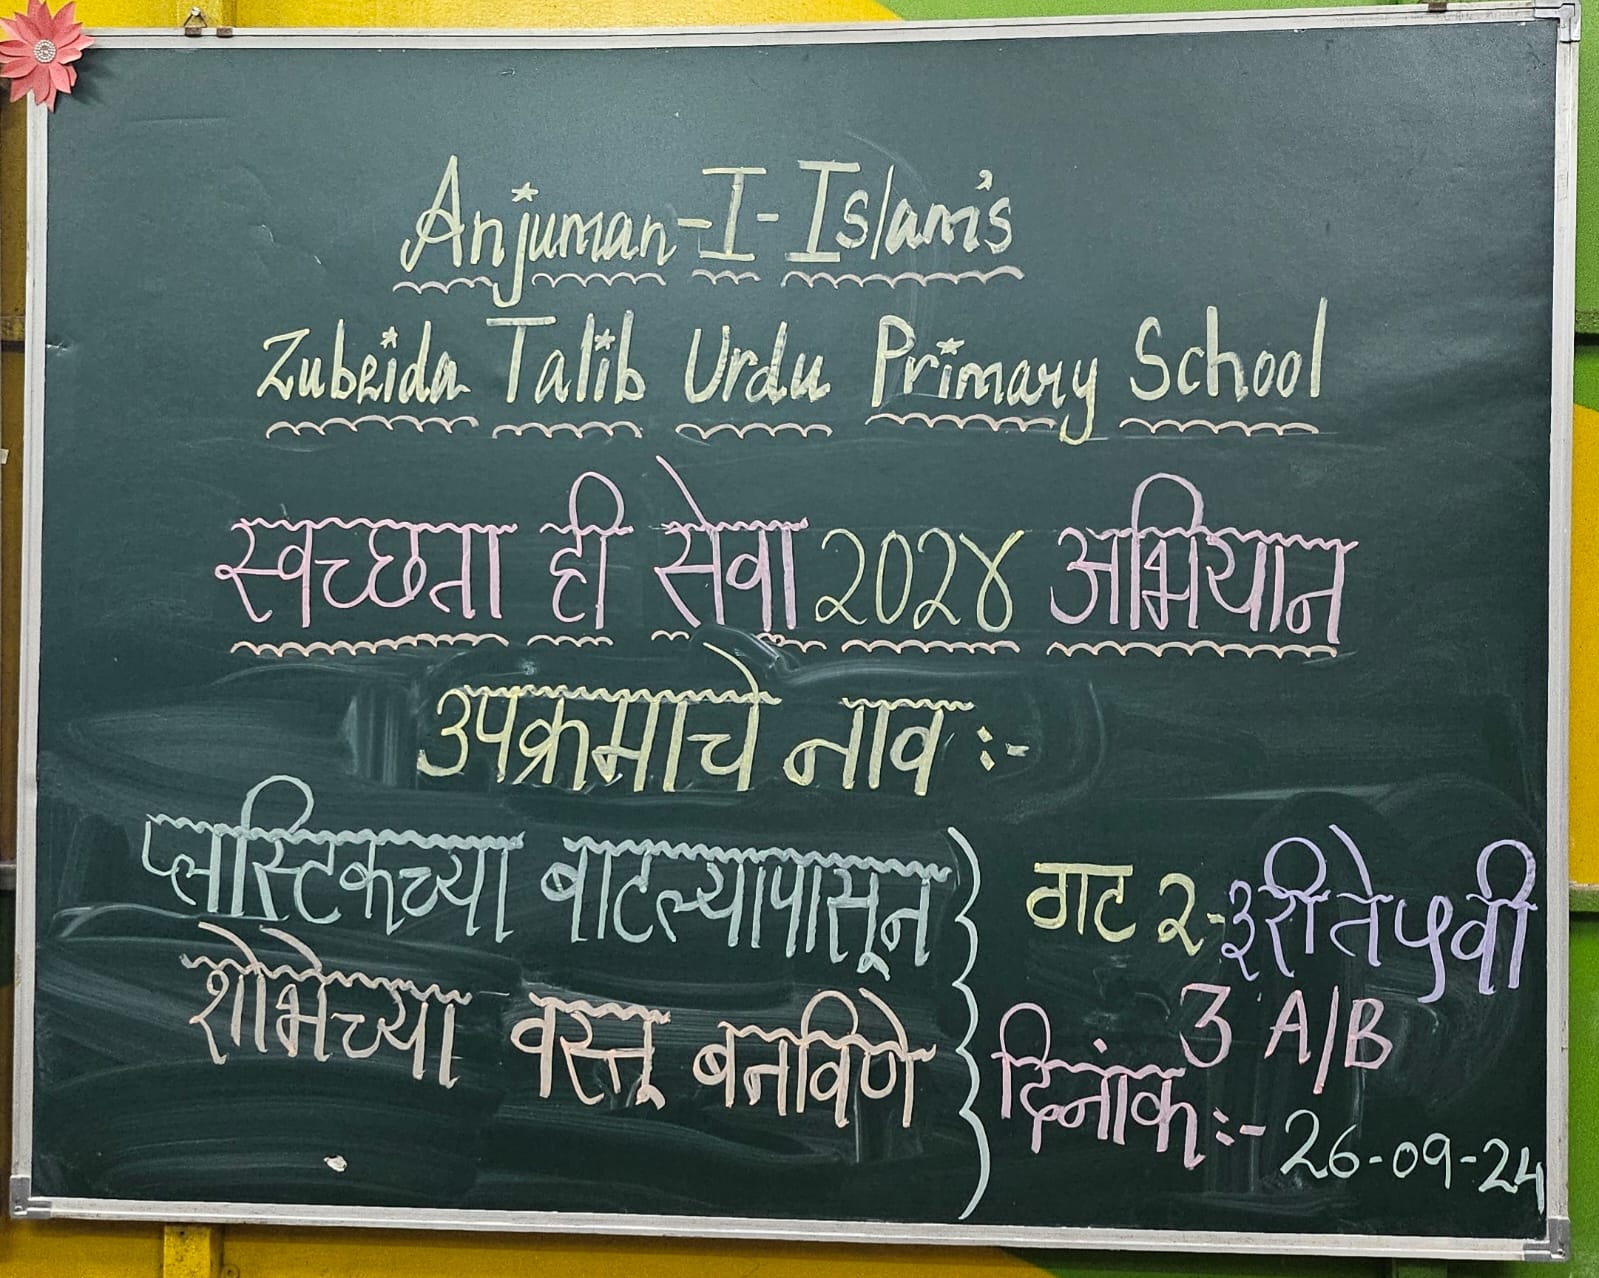 Anjuman-I-Islam's
Zubeida Talib Urdu Primary School
स्वच्छता ही सेवा २०२४ अभियान
उपक्रमाचे नाव :-
प्लास्टिकच्या बाटल्यापासून
शोभेच्या वस्तू बनविणे
गट २-३री ते ५वी
3 A/B
दिनांक :- 26-09-24